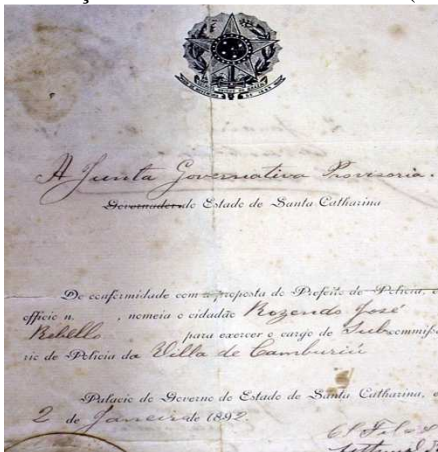 A Junta Governativa Provisoria.
Governador do Estado de Santa Catharina
De conformidade com a proposta do Prefeito de Policia, e
officio n. , nomeia o cidadão Rozendo José
Rebello para exercer o cargo de Subcommissa
rio de Policia da Villa de Camburiú
Palacio do Governo do Estado de Santa Catharina, e
2 de Janeiro de 1892.